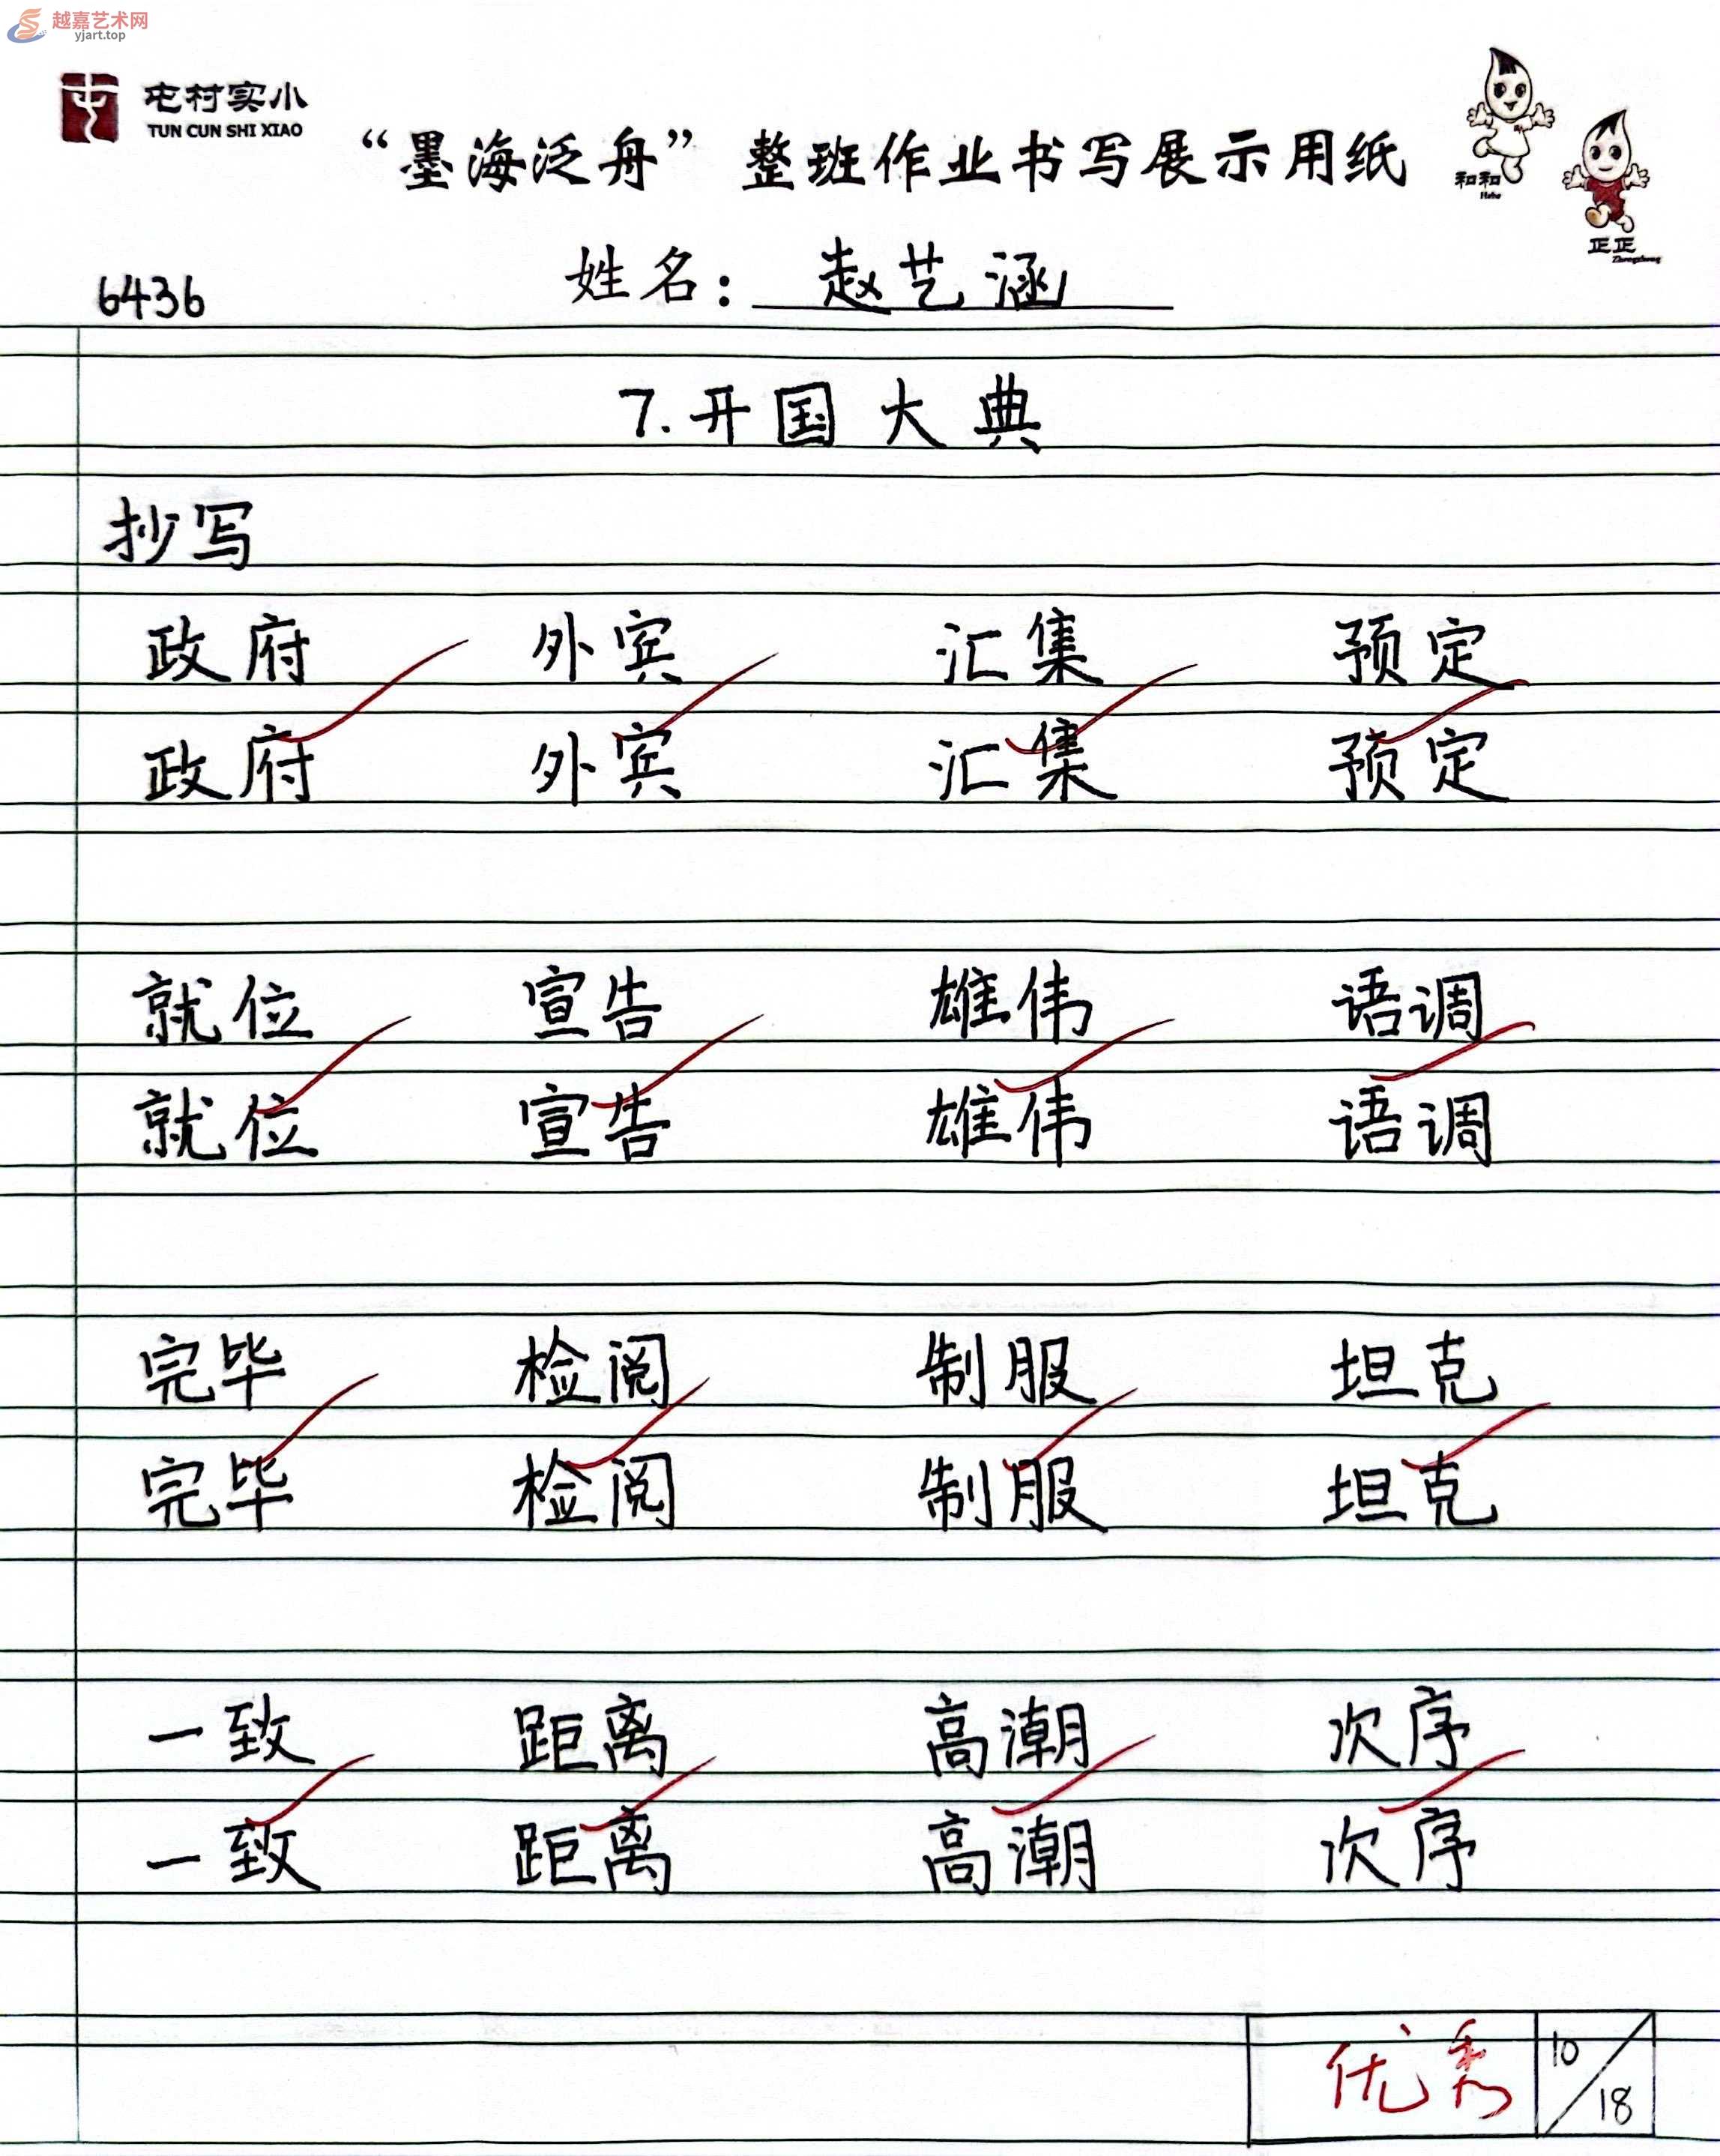 越嘉艺术网
yjart.top
屯村实小
TUN CUN SHI XIAO
“墨海泛舟”整班作业书写展示用纸
和和
Hehe
正正
Zhengzheng
6436 姓名：赵艺涵
7.开国大典
抄写
政府 外宾 汇集 预定
政府 外宾 汇集 预定
就位 宣告 雄伟 语调
就位 宣告 雄伟 语调
完毕 检阅 制服 坦克
完毕 检阅 制服 坦克
一致 距离 高潮 次序
一致 距离 高潮 次序
优秀 10/18